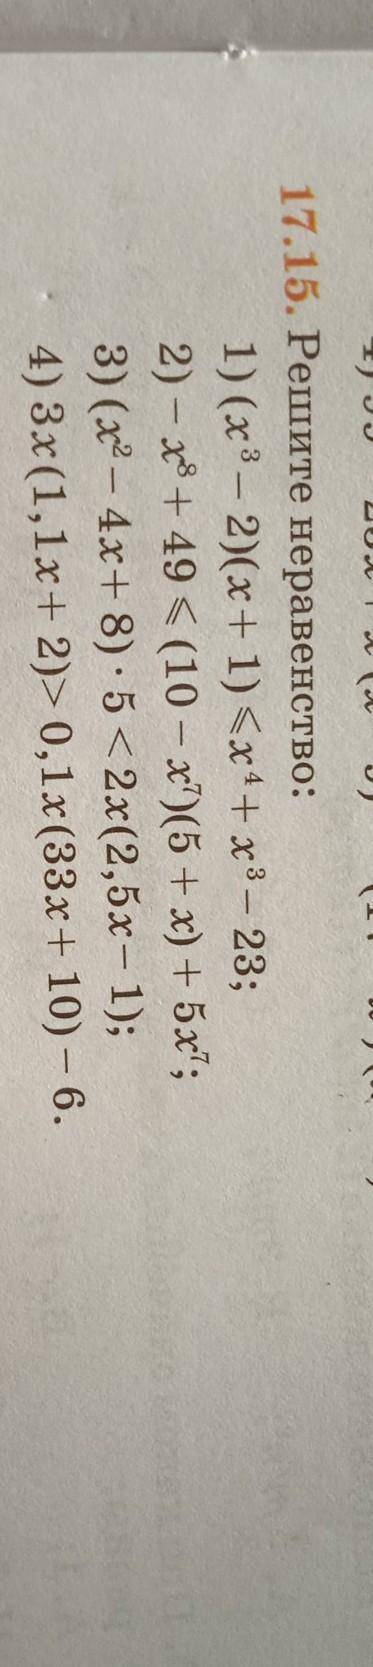 17.15. Решите неравенство:
1) (x³ – 2)(x + 1) ⩽ x⁴ + x³ – 23;
2) – x⁸ + 49 ⩽ (10 – x⁷)(5 + x) + 5x⁷;
3) (x² – 4x + 8) · 5 < 2x(2,5x – 1);
4) 3x(1,1x + 2) > 0,1x(33x + 10) – 6.